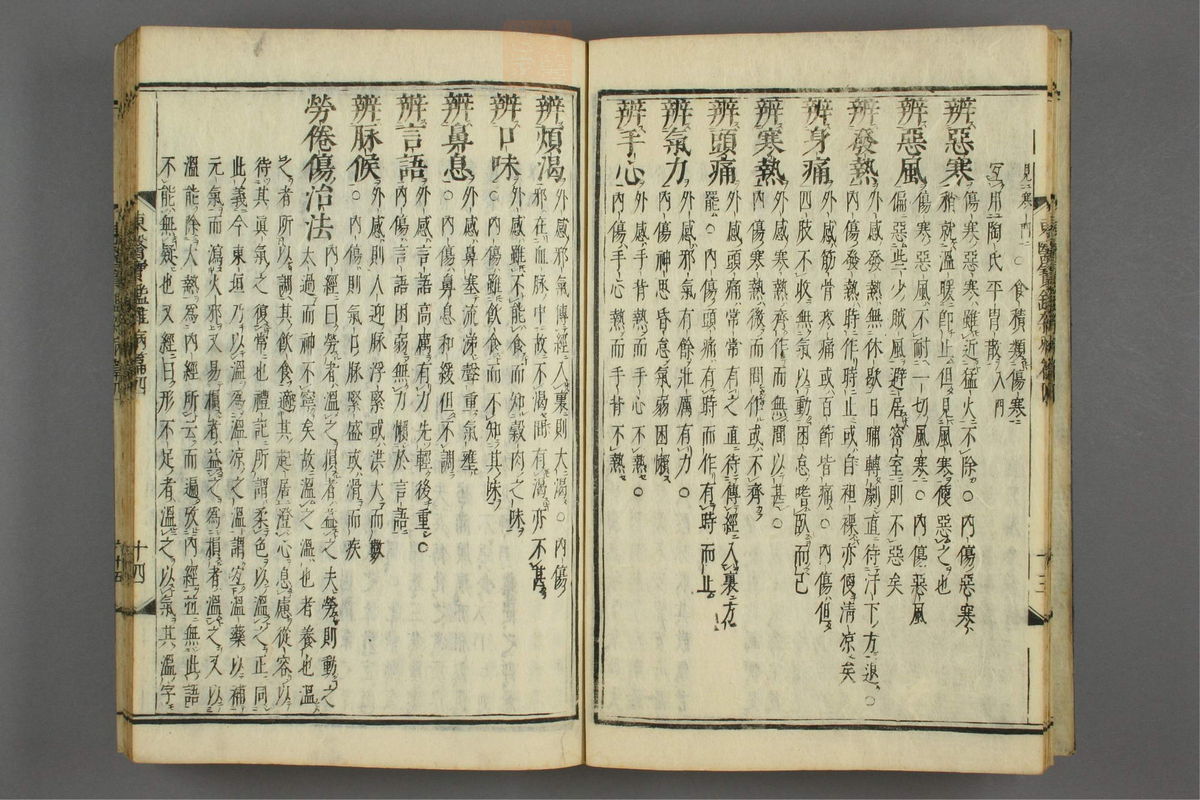 見寒門○食積類傷寒
宜用陶氏平胃散入門
辨惡寒
傷寒惡寒雖近猛火不除○內傷惡寒
稍就溫暖卽止但見風寒便惡之也
辨惡風
傷寒惡風不耐一切風寒○內傷惡風
偏惡些少賊風避居密室則不惡矣
辨發熱
外感發熱無休歇日晡轉劇直待汗下方退○
內傷發熱時作時止或自袒裸亦便淸涼矣
辨身痛
外感筋骨疼痛或百節皆痛○內傷但
四肢不收無氣以動困怠嗜臥而已
辨寒熱
外感寒熱齊作而無間以其○
內傷寒熱後而間作或不齊
辨頭痛
外感頭痛常常有之直待傳經入裏方
罷○內傷頭痛有時而作有時而止
辨氣力
外感邪氣有餘壯厲有力○
內傷神思昏怠氣弱困懶
辨手心
外感手背熱而手心不熱○
內傷手心熱而手背不熱
東醫寶鑑雜病篇四
十三
辨煩渴
外感邪氣傳經入裏則大渴○內傷
邪在血脉中故不渴間有渴亦不甚
辨口味
外感雖不能食而知穀肉之味
○內傷雖飮食而不知其味
辨鼻息
外感鼻塞流涕聲重氣壅
○內傷鼻息和緩但不調
辨言語
外感言語高厲有力先輕後重○
內傷言語困劣無力懶於言語
辨脉候
外感則人迎脉浮緊或洪大而數
○內傷則氣口脉緊盛或滑而疾
勞倦傷治法
內經曰勞者溫之損者益之夫勞則動之
太過而神不寧矣故溫之溫也者養也溫
之者所以調其飮食適其起居澄心息慮從容以
待其眞氣之復常也禮記所謂柔色以溫之正同
此義今東垣乃以溫爲溫涼之溫謂宜溫藥以補
元氣而瀉火邪又易損者益之爲損者溫之又以
溫能除大熱爲內經所云而遍攷內經並無此語
不能無疑也又經曰形不足者溫之以氣其溫字
東醫寶鑑雜病篇四
十四